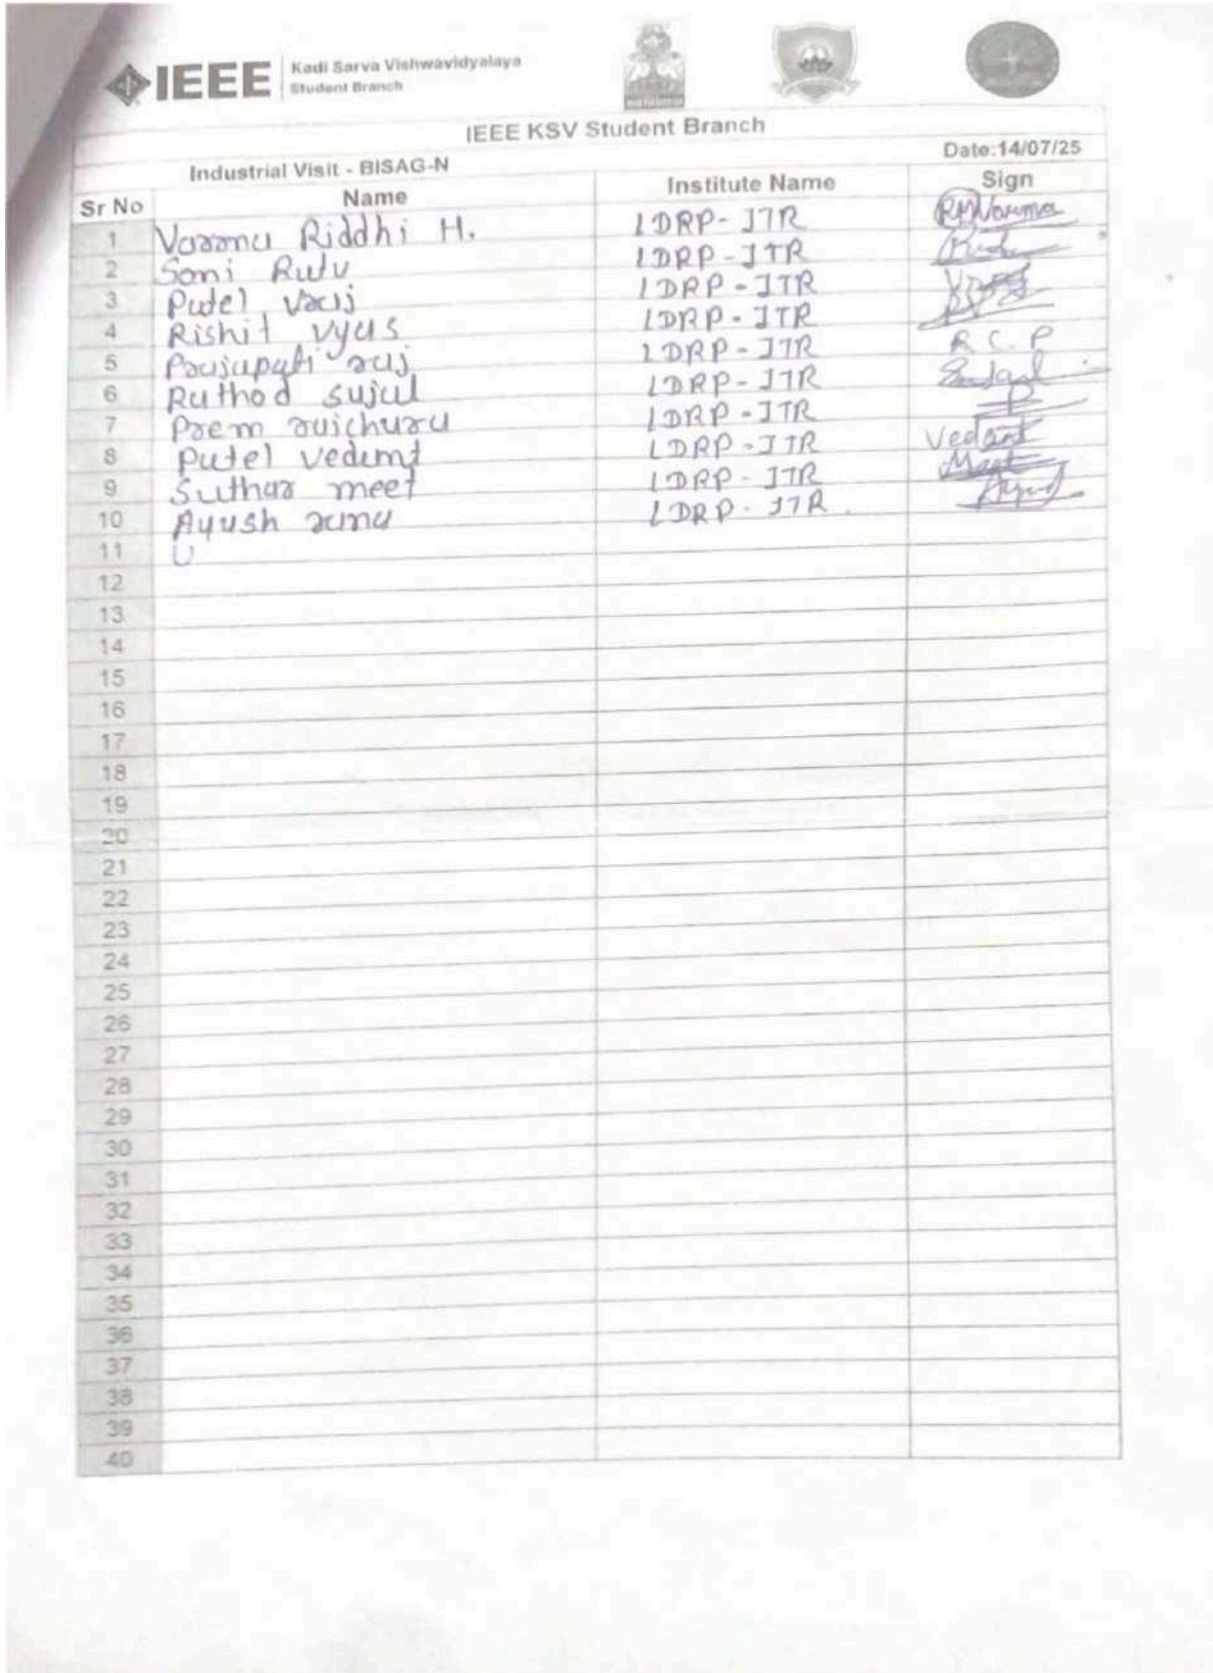 IEEE Kadi Sarva Vishwavidyalaya
Student Branch
IEEE KSV Student Branch
Industrial Visit - BISAG-N Date:14/07/25
Sr No Name Institute Name Sign
1 Varma Riddhi H. LDRP-ITR RHVarma
2 Soni Rutv LDRP-ITR
3 Patel LDRP-ITR
4 Rishit vyas LDRP-ITR
5 Prajapati raj LDRP-ITR R C. P
6 Rathod sujal LDRP-ITR Sujal
7 Prem raichura LDRP-ITR
8 Patel vedant LDRP-ITR Vedant
9 Suthar meet LDRP-ITR Meet
10 Ayush rama LDRP-ITR.
11
12
13
14
15
16
17
18
19
20
21
22
23
24
25
26
27
28
29
30
31
32
33
34
35
36
37
38
39
40